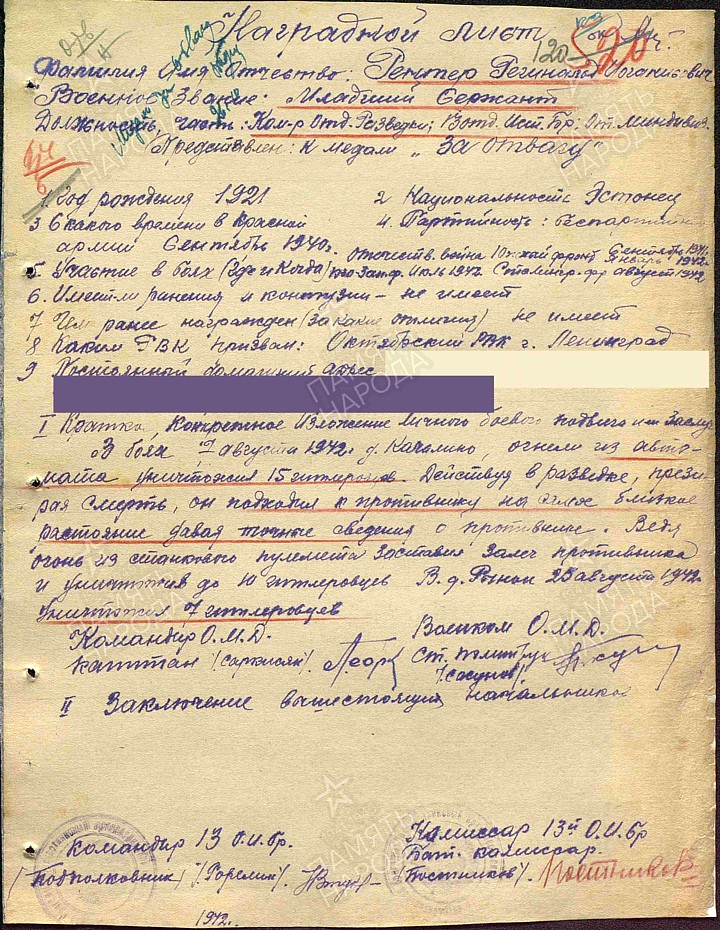 Наградной лист
120
520
Фамилия Имя Отчество: Рентер Регинальд Иоганесович
Военное Звание: Младший Сержант
Должность, часть: Ком-р Отд. Разведки; Вотд. Ист. Бр; От. Миндивиз.
Представлен: к медали „За отвагу"
1. Год рождения 1921 2 Национальность Эстонец
3 С какого времени в Красной 4. Партийность: беспартийн
армии Сентябрь 1940г.
Отечеств. война Южный фронт Сентябрь 1941 Январь 1942
5 Участие в боях (где и когда) Июль 1942. Сталингр. фр август 1942
6. Имеет ли ранения и контузии – не имеет
7 Чем ранее награжден (за какие отличия) не имеет
8 Каким РВК призван: Октябрьский РВК г. Ленинград
9 Постоянный домашний адрес
I Кратко, конкретное изложение личного боевого подвига или заслу
В боях 7 августа 1942г. д. Качалино, огнем из авто-
мата уничтожил 15 гитлеровцев. Действуя в разведке, прези-
рая смерть, он подходил к противнику на самое близкое
растояние давая точные сведения о противнике. Ведя
огонь из станкового пулемета заставил залечь противника
и уничтожив до 10 гитлеровцев В. д. Рынок 25 августа 1942г.
уничтожил 7 гитлеровцев
Командир О.М.Д. Военком О.М.Д.
капитан /Саркисян/ Ст. политрук
/Сасунов/
II Заключение вышестоящих начальников
Командир 13 О.И.бр. Комиссар 13й О.И.бр
Бат. комиссар.
(Подполковник) (Постников/. Постников
1942г.
ПАМЯТЬ НАРОДА